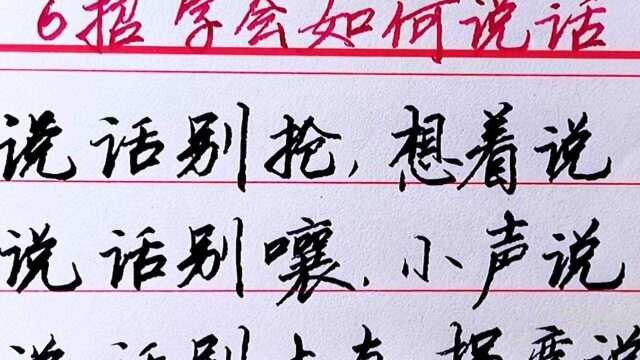 6招学会如何说话
说话别抢,想着说
说话别嚷,小声说
说话别